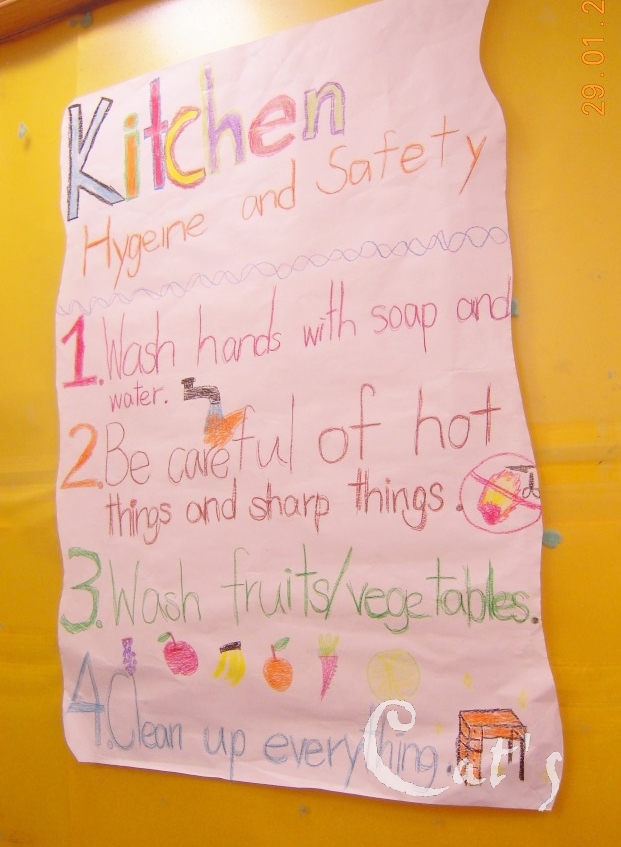 29.01.2
Kitchen
Hygeine and Safety
1. Wash hands with soap and
water.
2. Be careful of hot
things and sharp things.
3. Wash fruits/vegetables.
4. Clean up everything.
Cat's